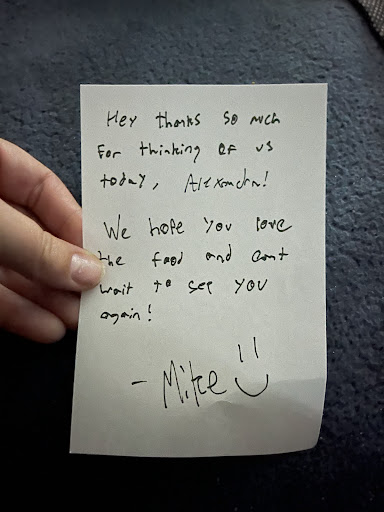 Hey thanks so much
for thinking of us
today, Alexandra!
We hope you love
the food and cant
wait to see you
again!
- Mike